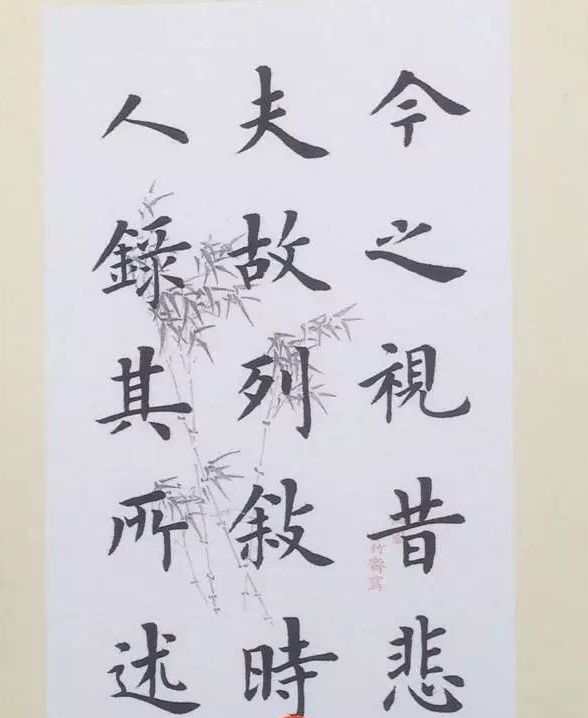 今之視昔悲
夫故列敍時
人錄其所述
竹齋寫